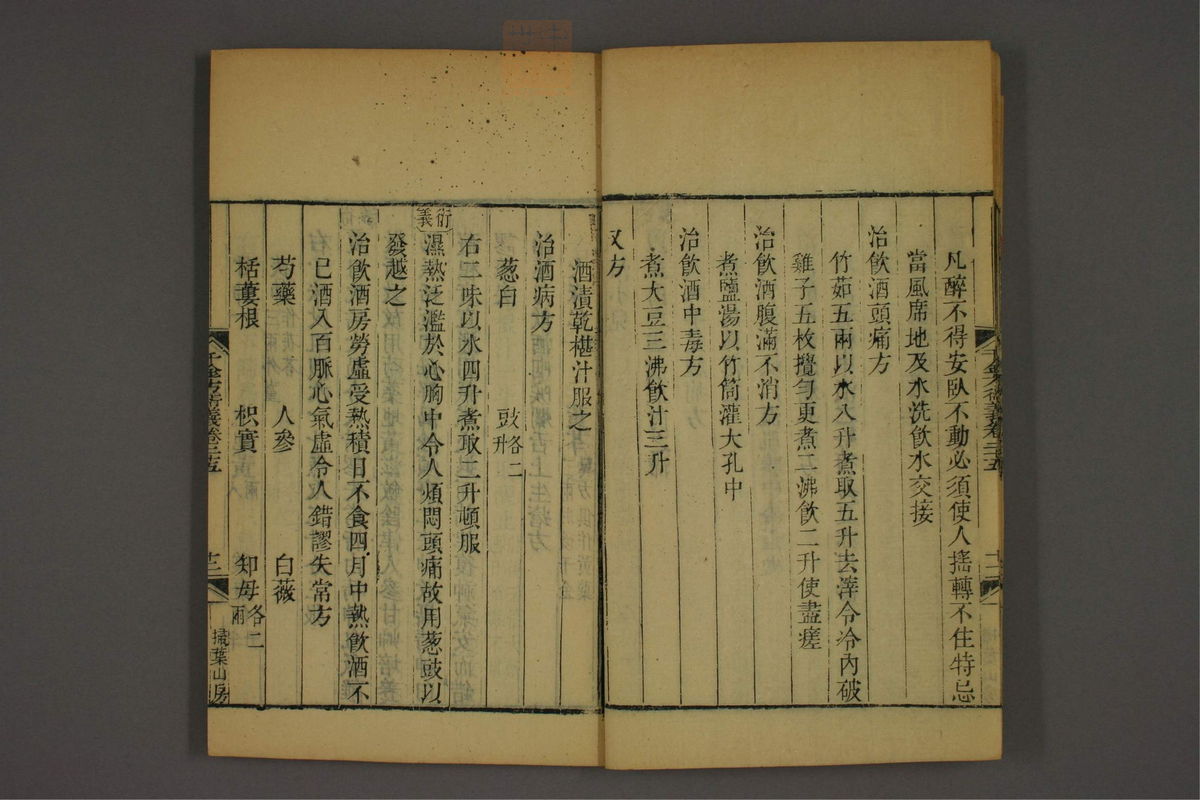 凡醉不得安臥不動必須使人搖轉不住特忌
當風席地及水洗飲水交接
治飲酒頭痛方
竹茹五兩以水八升煮取五升去滓令冷內破
雞子五枚攪勻更煮二沸飲二升使盡瘥
治飲酒腹滿不消方
煮鹽湯以竹筒灌大孔中
治飲酒中毒方
煮大豆三沸飲汁三升
又方
酒漬乾椹汁服之
治酒病方
蔥白 豉各二升
右二味以水四升煮取二升頓服
衍義
濕熱泛濫於心胸中令人煩悶頭痛故用蔥豉以
發越之
治飲酒房勞虛受熱積日不食四月中熱飲酒不
已酒入百脈心氣虛令人錯謬失常方
芍藥 人參 白薇
栝蔞根 枳實 知母各二兩
千金方衍義卷二十五
十二
掃葉山房